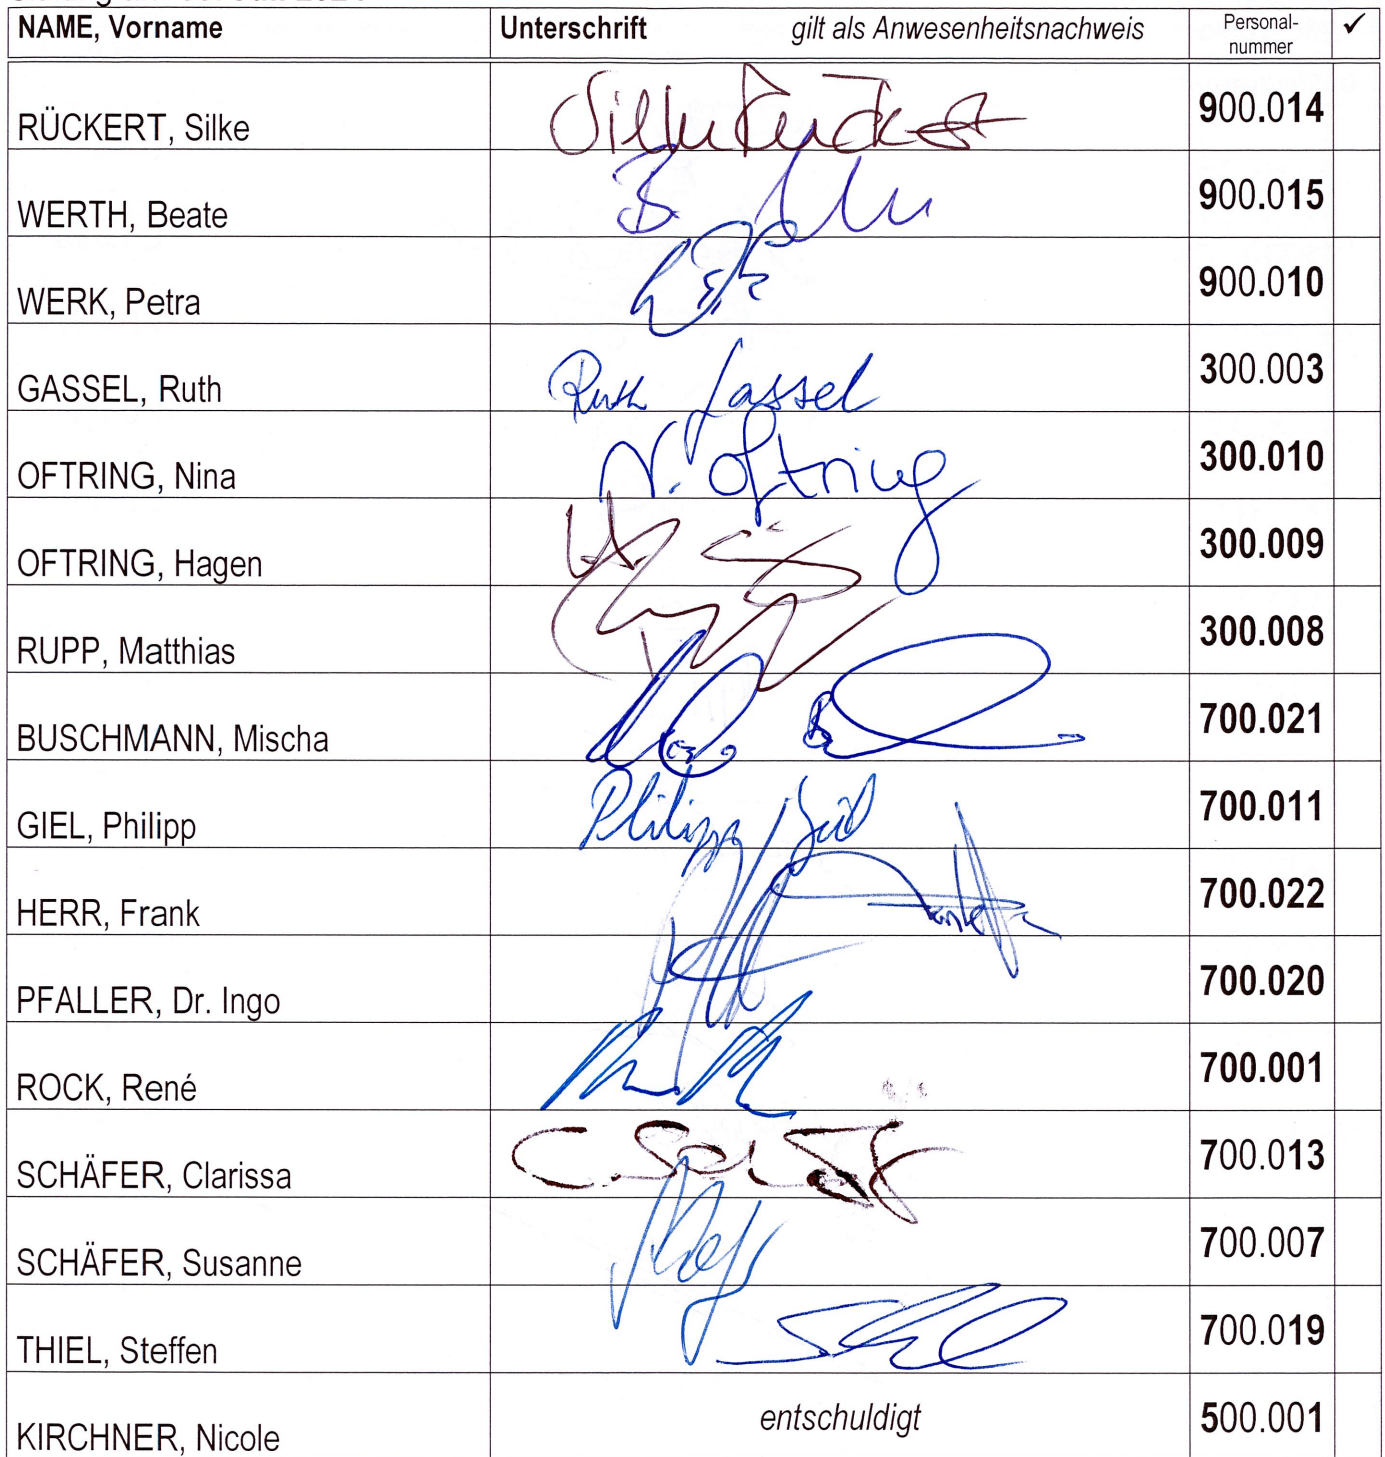 NAME, Vorname Unterschrift gilt als Anwesenheitsnachweis Personal-nummer ✓
RÜCKERT, Silke Silke Rückert 900.014
WERTH, Beate B. 900.015
WERK, Petra 900.010
GASSEL, Ruth Ruth Gassel 300.003
OFTRING, Nina N. Oftring 300.010
OFTRING, Hagen 300.009
RUPP, Matthias 300.008
BUSCHMANN, Mischa 700.021
GIEL, Philipp Philipp Giel 700.011
HERR, Frank 700.022
PFALLER, Dr. Ingo 700.020
ROCK, René 700.001
SCHÄFER, Clarissa 700.013
SCHÄFER, Susanne 700.007
THIEL, Steffen 700.019
KIRCHNER, Nicole entschuldigt 500.001